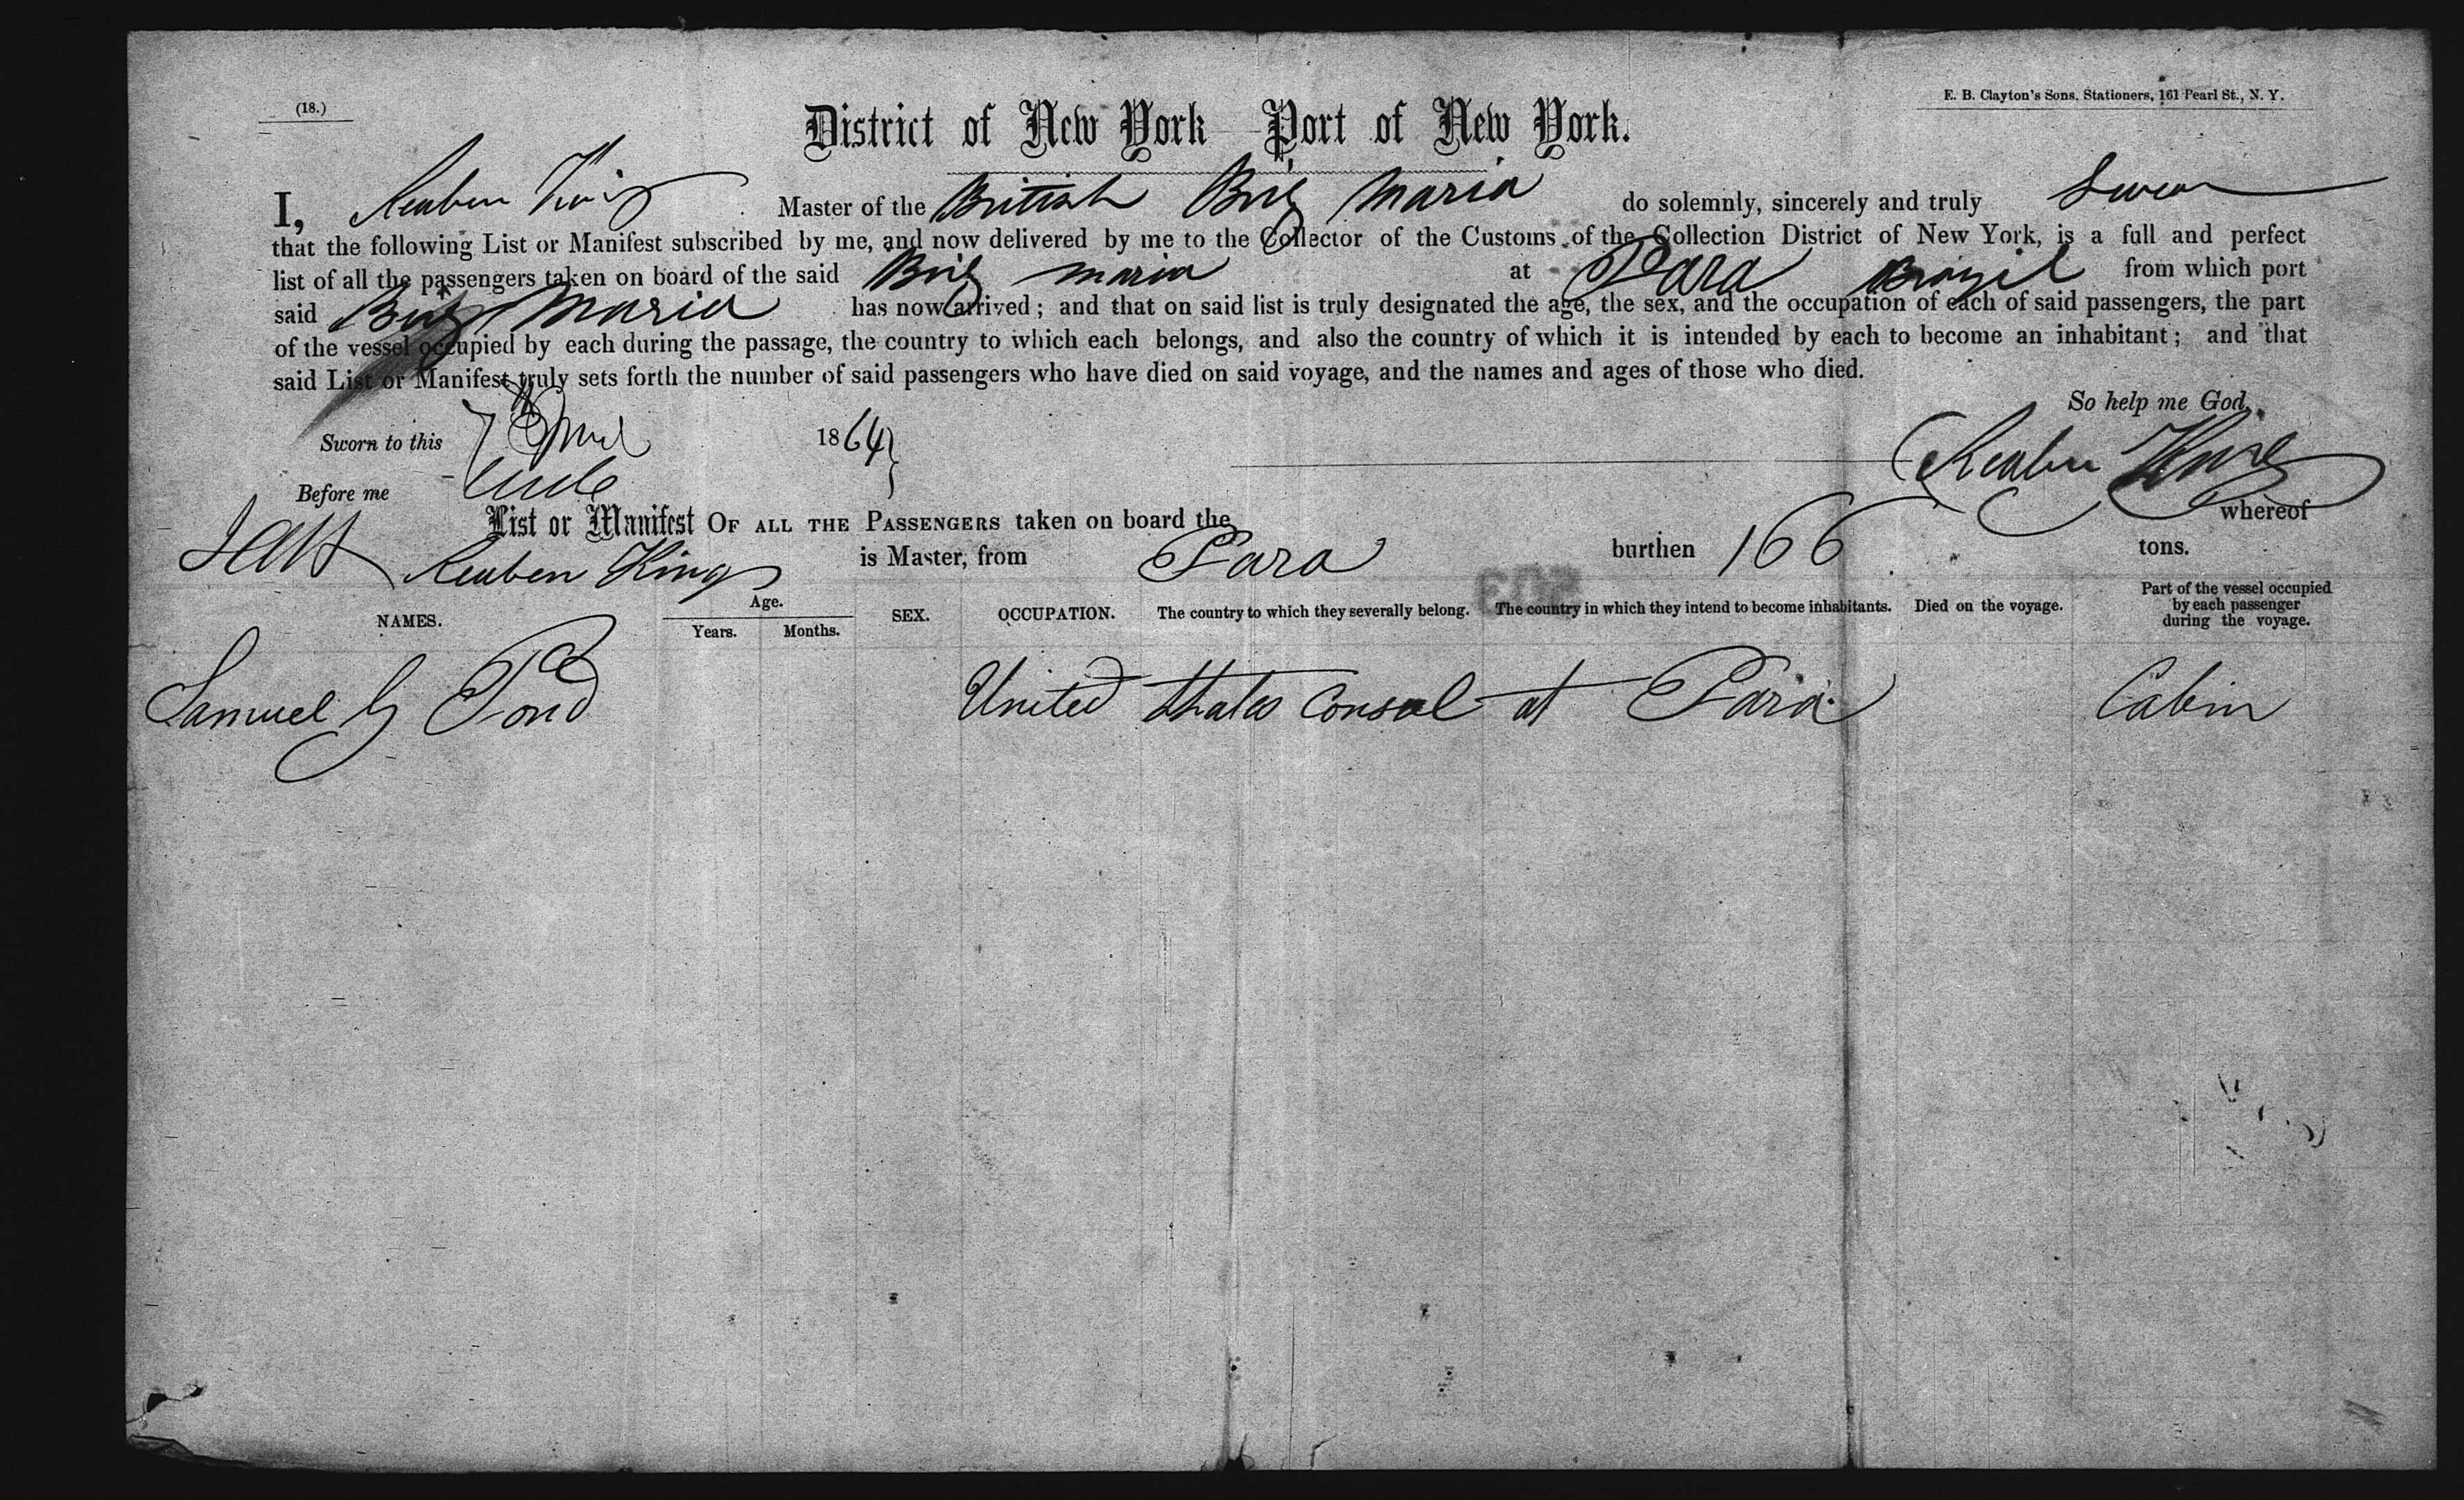 (18.)
E. B. Clayton's Sons, Stationers, 161 Pearl St., N. Y.
District of New York Port of New York.
I, Reuben King Master of the British Brig Maria do solemnly, sincerely and truly Swear
that the following List or Manifest subscribed by me, and now delivered by me to the Collector of the Customs of the Collection District of New York, is a full and perfect
list of all the passengers taken on board of the said Brig Maria at Para Brazil from which port
said Brig Maria has now arrived; and that on said list is truly designated the age, the sex, and the occupation of each of said passengers, the part
of the vessel occupied by each during the passage, the country to which each belongs, and also the country of which it is intended by each to become an inhabitant; and that
said List or Manifest truly sets forth the number of said passengers who have died on said voyage, and the names and ages of those who died.
So help me God.
Sworn to this 7 1864
Reuben King
Before me
List or Manifest OF ALL THE PASSENGERS taken on board the whereof
Reuben King is Master, from Para burthen 166 tons.
NAMES. Age. Years. Months. SEX. OCCUPATION. The country to which they severally belong. The country in which they intend to become inhabitants. Died on the voyage. Part of the vessel occupied by each passenger during the voyage.
Samuel G Pond United States Consul at Para Cabin